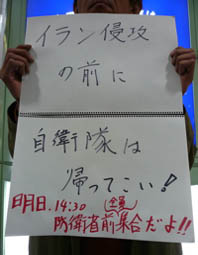 イラン侵攻
の前に
自衛隊は
帰ってこい!
明日、14:30 全員
防衛省前集合だよ!!